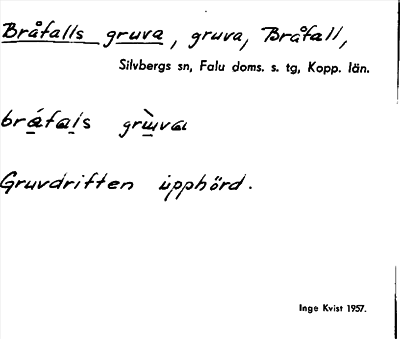 Bråfalls gruva, gruva, Bråfall,
Silvbergs sn, Falu doms. s. tg, Kopp. län.
bråfals gruva
Gruvdriften upphörd.
Inge Kvist 1957.